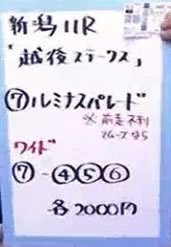 新潟11R
「越後ステークス」
⑦ルミナスパレード
※前走不利
スムーズなら
ワイド
⑦-④⑤⑥
各2000円